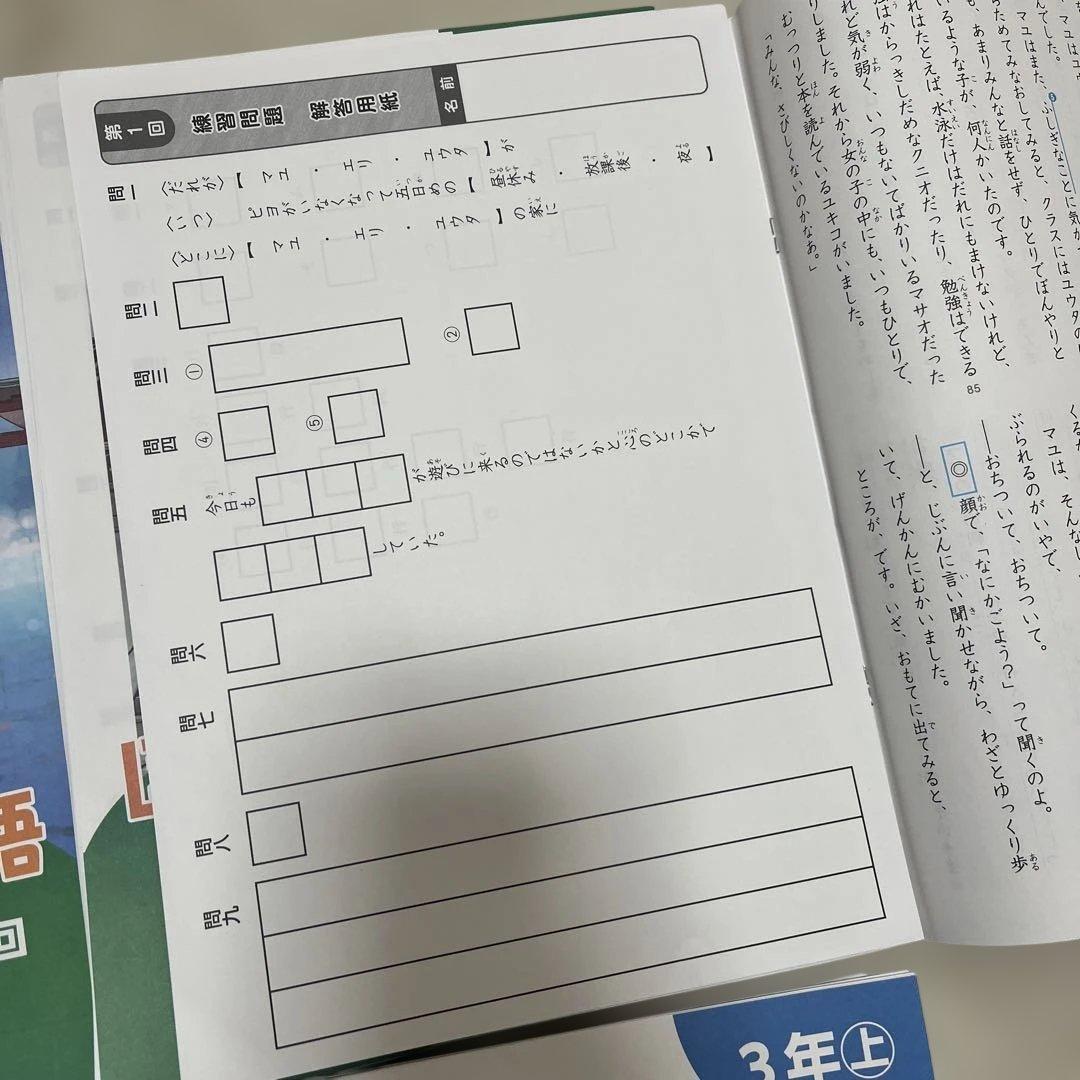 第1回
練習問題　解答用紙
名前
問一
〈だれが〉【　マユ　・　エリ　・　ユウタ　】が
〈いつ〉　ピヨがいなくなって五日めの【　昼休み　・　放課後　・　夜　】
〈どこに〉【　マユ　・　エリ　・　ユウタ　】の家に
問二
問三
①
②
問四
④
⑤
問五
今日も
が遊びに来るのではないかと心のどこかで
していた。
問六
問七
問八
問九
マユはまた、⑤ふしぎなことに気が
んでした。
らためてみなおしてみると、クラスにはユウタの
も、あまりみんなと話をせず、ひとりでぼんやりと
いるような子が、何人かいたのです。
れはたとえば、水泳だけはだれにもまけないけれど、
強はからっきしだめなクニオだったり、勉強はできる
れど気が弱く、いつもないてばかりいるマサオだった
りしました。それから女の子の中にも、いつもひとりで、
むっつりと本を読んでいるユキコがいました。
「みんな、さびしくないのかなあ。」
85
マユは、そんな
ぶられるのがいやで、
――おちついて、おちついて。
◎顔で、「なにかごよう？」って聞くのよ。
――と、じぶんに言い聞かせながら、わざとゆっくり歩
いて、げんかんにむかいました。
ところが、です。いざ、おもてに出てみると、
語
回
3年上